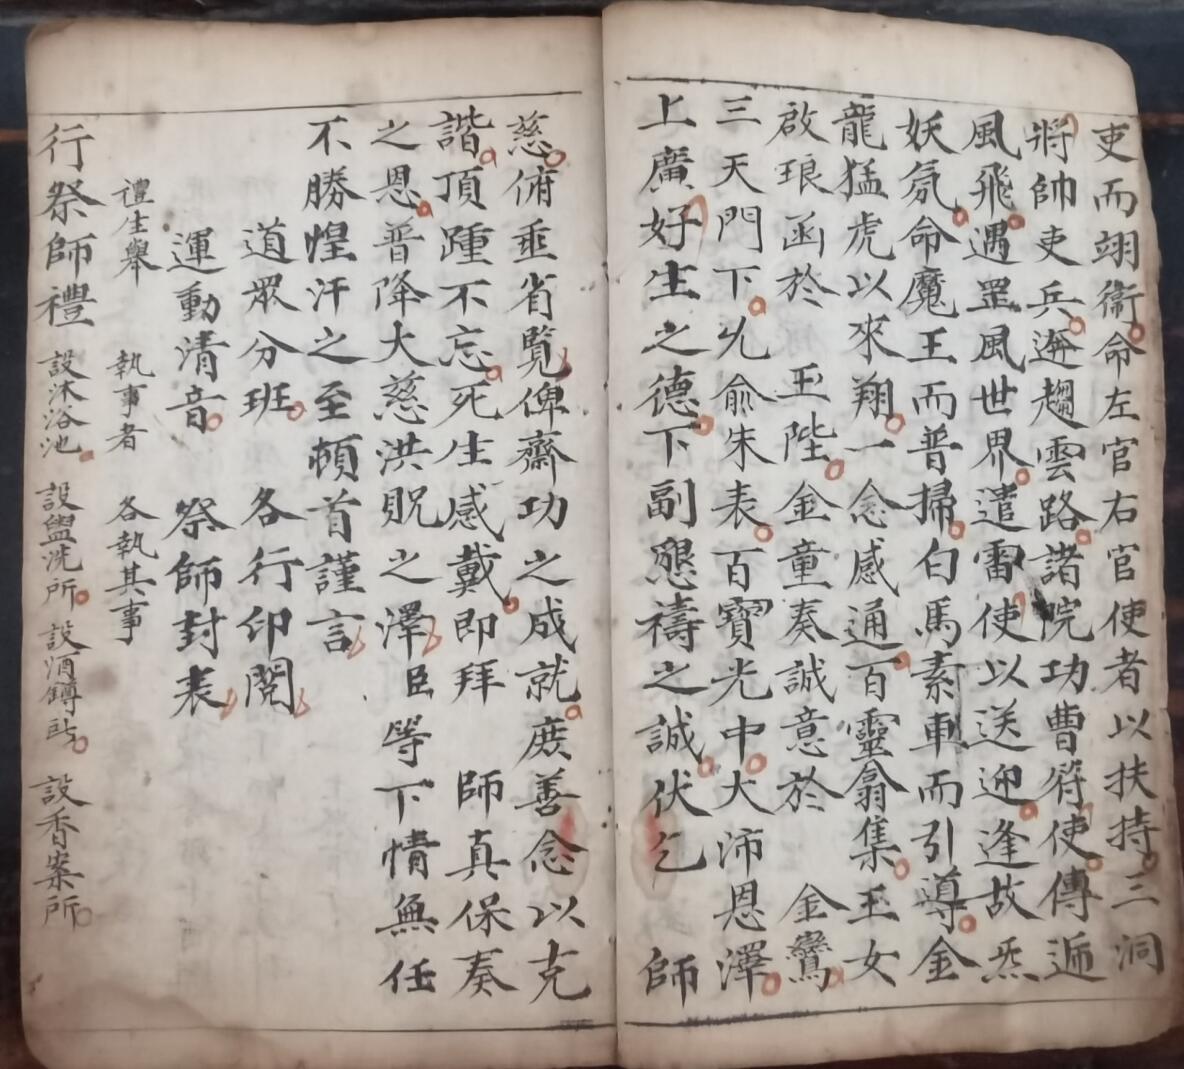 吏而翊衞命左官右官使者以扶持三洞
將帥吏兵遊趨雲路諸院功曹符使傳逓
風飛遇罡風世界遣雷使以送迎逢故炁
妖氛命魔王而普掃白馬素車而引導金
龍猛虎以來翔一念感通百靈翕集玉女
啟琅函於 玉陛金童奏誠意於 金鸞
三天門下允俞朱表百寶光中大沛恩澤
上廣好生之德下副懇禱之誠伏乞 師
慈俯垂省覧俾齋功之成就庶善念以克
諧頂踵不忘死生感戴即拜 師真保奏
之恩普降大慈洪貺之澤臣等下情無任
不勝惶汗之至頓首謹言
道眾分班 各行印閱
運動清音 祭師封表
禮生舉 執事者 各執其事
行祭師禮 設沐浴池 設盥洗所 設酒罇所 設香案所